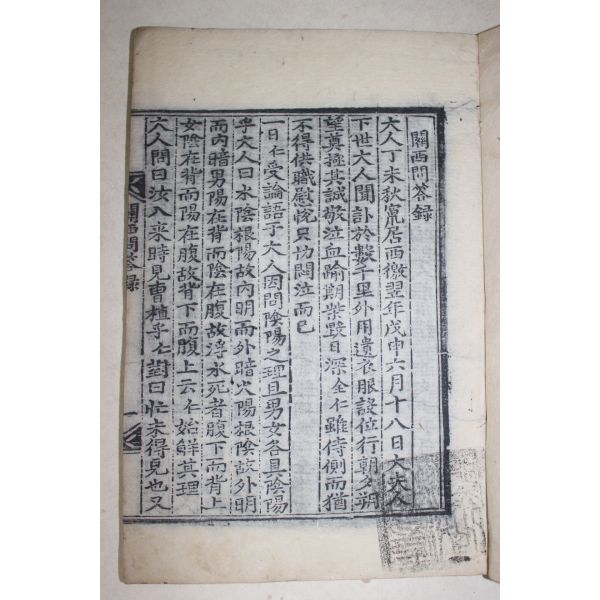 關西問答錄
大人丁未秋竄居西徼翌年戊申六月十八日大夫人
下世大人聞訃於數千里外用遺衣服設位行朝夕朔
望奠極其誠敬泣血踰期柴毀日深全仁雖侍側而猶
不得供職慰悅只切悶泣而已
一日仁受論語于大人因問陰陽之理且男女各具陰陽
乎大人曰水陰根陽故內明而外暗火陽根陰故外明
而內暗男陽在背而陰在腹故浮水死者腹下而背上
女陰在背而陽在腹故背下而腹上云仁始觧其理
大人問曰汝入來時見曺植乎仁對曰忙未得見也又
關西問答錄
一